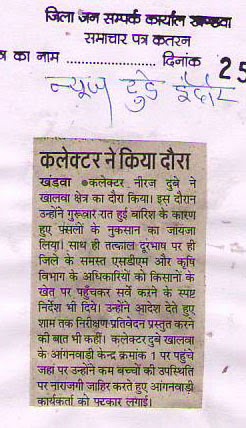 जिला जन सम्पर्क कार्याल खण्डवा
समाचार पत्र कतरन
का नाम ...................... दिनांक 25
न्यूज टुडे इंदौर
कलेक्टर ने किया दौरा
खंडवा ● कलेक्टर नीरज दुबे ने
खालवा क्षेत्र का दौरा किया। इस दौरान
उन्होंने गुरूवार रात हुई बारिश के कारण
हुए फसलों के नुकसान का जायजा
लिया। साथ ही तत्काल दूरभाष पर ही
जिले के समस्त एसडीएम और कृषि
विभाग के अधिकारियों को किसानो के
खेत पर पहुँचकर सर्वे करने के स्पष्ट
निर्देश भी दिये। उन्होंने आदेश देते हुए
शाम तक निरीक्षण प्रतिवेदन प्रस्तुत करने
की बात भी कहीं। कलेक्टर दुबे खालवा
के आंगनवाड़ी केन्द्र क्रमांक 1 पर पहुंचे
जहां पर उन्होंने कम बच्चों की उपस्थिति
पर नाराजगी जाहिर करते हुए आंगनवाड़ी
कार्यकर्ता को फटकार लगाई।